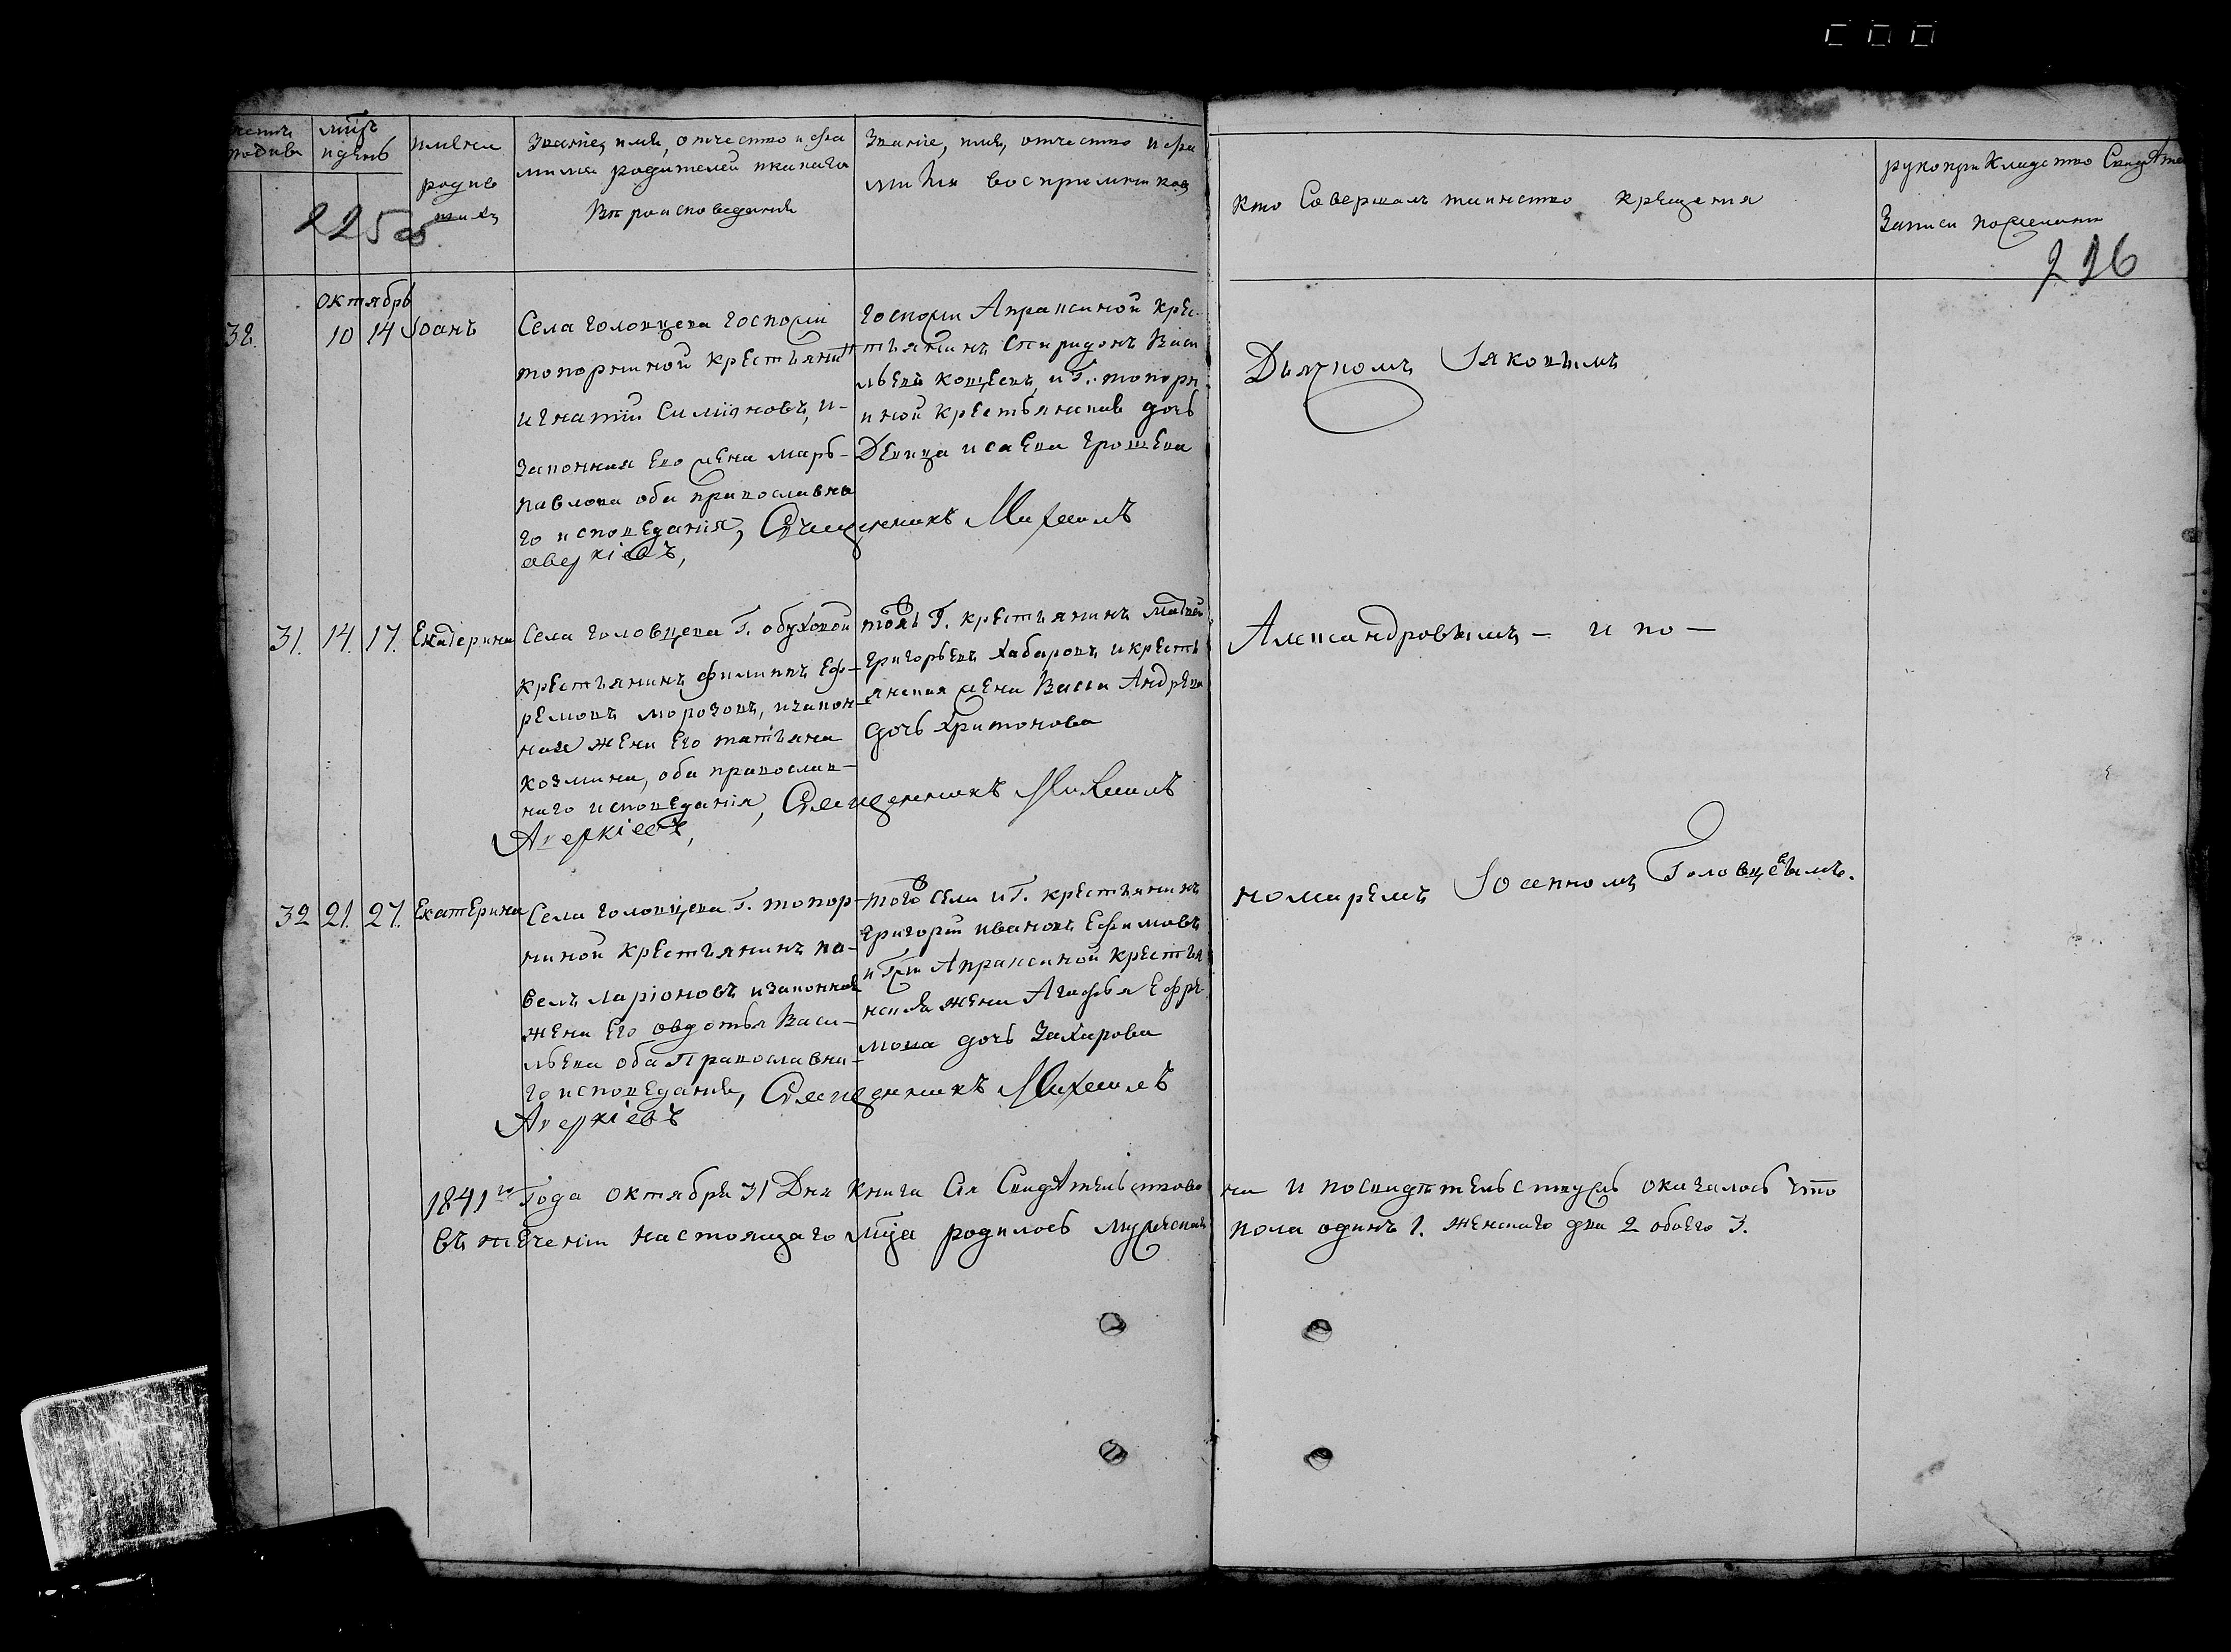 мѣсць
и день
имена
родив
шихъ
Званіе, имя, отчество и фа
милія родителей и какого
Вѣроисповеданія
Званіе, имя, отчество и фа
милія воспріемниковъ
Кто Совершалъ таинство крещенія
рукоприкладство Свидѣте
Записи по желанію
225 об
226
октябрь
32.
10 14 Іоанъ
Села Головцева Госпожи
топорниной крестьянинъ
игнатій Симіоновъ, и
законная Его жена Марь-
Павлова оба православна
го исповеданія, Священникъ Михаилъ
Аверкіевъ,
Госпожи Апраксиной крес-
тьянинъ Спиридонъ Васи
льевъ Кощеевъ, и Г. топорн
иной крестьянская дочь
Девица исаева Грошева
Дьячкомъ Іяковымъ
31. 14. 17. Екатерина
Села Головцева Г. обуховой
крестьянинъ филиппъ Еф-
ремовъ морозовъ, и закон-
ная жена Его татіяна
козмина, оба православ-
наго исповеданія, Священникъ Михаилъ
Аверкіевъ,
тояжъ Г. крестьянинъ Матвей
Григорьевъ Хабаровъ и кресть
янская жена Васса Андрева
дочь Харитонова
Александровымъ – и по –
32 21. 27. Екатерина
Села Головцева Г. топор-
ниной крестьянинъ па-
велъ ларіоновъ и законная
жена Его овдотья Васи-
льева оба Православна-
го исповеданія, Священникъ Михаилъ
Аверкіевъ
того села и Г. крестьянинъ
Григорій ивановъ Ефимовъ
и Гжи Апраксиной крестья
нская жена Агафья Ефре
мова дочь Захарова
номаремъ Іосипомъ Головцевымъ.
1841го Года октября 31 Дня книга Сія Свидѣтельствова
на и посвидѣтельствуҍ оказалось что
въ теченіи настоящаго мца родилось мужеска
пола одинъ 1. женскаго два 2 обоего 3.